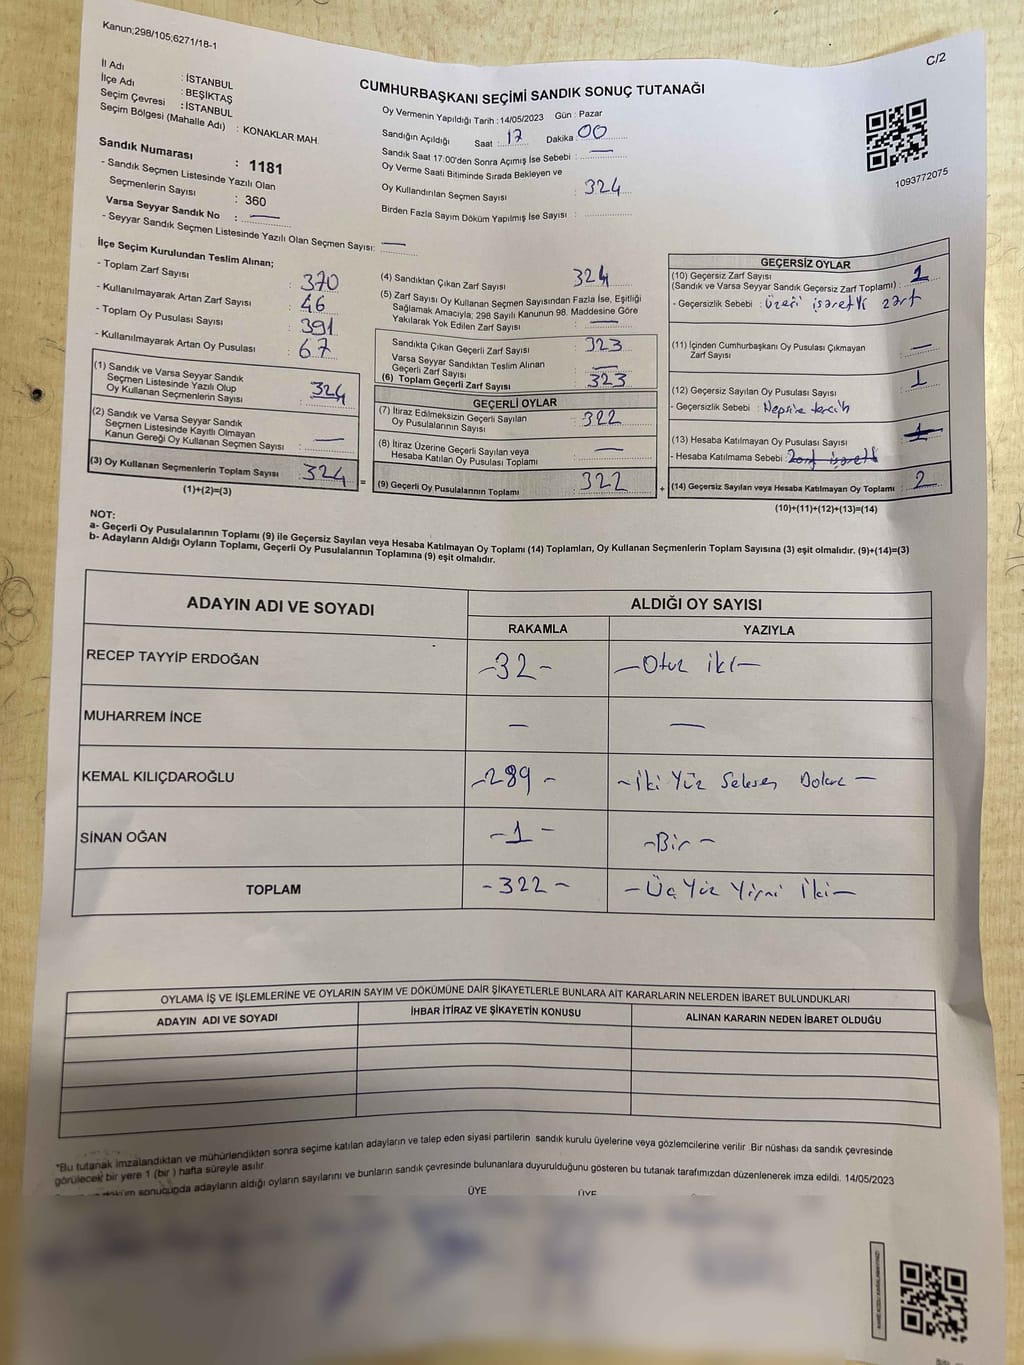 Kanun;298/105,6271/18-1
C/2
İl Adı : İSTANBUL
İlçe Adı : BEŞİKTAŞ
Seçim Çevresi : İSTANBUL
Seçim Bölgesi (Mahalle Adı) : KONAKLAR MAH.
Sandık Numarası : 1181
- Sandık Seçmen Listesinde Yazılı Olan
Seçmenlerin Sayısı : 360
Varsa Seyyar Sandık No : —
- Seyyar Sandık Seçmen Listesinde Yazılı Olan Seçmen Sayısı: —
CUMHURBAŞKANI SEÇİMİ SANDIK SONUÇ TUTANAĞI
Oy Vermenin Yapıldığı Tarih : 14/05/2023 Gün : Pazar
Sandığın Açıldığı Saat : 17 Dakika : 00
Sandık Saat 17:00'den Sonra Açımış İse Sebebi : —
Oy Verme Saati Bitiminde Sırada Bekleyen ve
Oy Kullandırılan Seçmen Sayısı : 324
Birden Fazla Sayım Döküm Yapılmış İse Sayısı :
1093772075
İlçe Seçim Kurulundan Teslim Alınan;
- Toplam Zarf Sayısı : 370
- Kullanılmayarak Artan Zarf Sayısı : 46
- Toplam Oy Pusulası Sayısı : 391
- Kullanılmayarak Artan Oy Pusulası : 67
(1) Sandık ve Varsa Seyyar Sandık
Seçmen Listesinde Yazılı Olup
Oy Kullanan Seçmenlerin Sayısı : 324
(2) Sandık ve Varsa Seyyar Sandık
Seçmen Listesinde Kayıtlı Olmayan
Kanun Gereği Oy Kullanan Seçmen Sayısı : —
(3) Oy Kullanan Seçmenlerin Toplam Sayısı : 324
(1)+(2)=(3)
(4) Sandıktan Çıkan Zarf Sayısı 324
(5) Zarf Sayısı Oy Kullanan Seçmen Sayısından Fazla İse, Eşitliği
Sağlamak Amacıyla; 298 Sayılı Kanunun 98. Maddesine Göre
Yakılarak Yok Edilen Zarf Sayısı : —
Sandıkta Çıkan Geçerli Zarf Sayısı : 323
Varsa Seyyar Sandıktan Teslim Alınan
Geçerli Zarf Sayısı : —
(6) Toplam Geçerli Zarf Sayısı : 323
GEÇERLİ OYLAR
(7) İtiraz Edilmeksizin Geçerli Sayılan
Oy Pusulalarının Sayısı : 322
(8) İtiraz Üzerine Geçerli Sayılan veya
Hesaba Katılan Oy Pusulası Toplamı : —
= (9) Geçerli Oy Pusulalarının Toplamı : 322
GEÇERSİZ OYLAR
(10) Geçersiz Zarf Sayısı
(Sandık ve Varsa Seyyar Sandık Geçersiz Zarf Toplamı) : 1
- Geçersizlik Sebebi : Üzeri işaretli zarf
(11) İçinden Cumhurbaşkanı Oy Pusulası Çıkmayan
Zarf Sayısı : —
(12) Geçersiz Sayılan Oy Pusulası Sayısı : 1
- Geçersizlik Sebebi : Hepsine tercih
(13) Hesaba Katılmayan Oy Pusulası Sayısı :
- Hesaba Katılmama Sebebi :
+ (14) Geçersiz Sayılan veya Hesaba Katılmayan Oy Toplamı : 2
(10)+(11)+(12)+(13)=(14)
NOT:
a- Geçerli Oy Pusulalarının Toplamı (9) ile Geçersiz Sayılan veya Hesaba Katılmayan Oy Toplamı (14) Toplamları, Oy Kullanan Seçmenlerin Toplam Sayısına (3) eşit olmalıdır. (9)+(14)=(3)
b- Adayların Aldığı Oyların Toplamı, Geçerli Oy Pusulalarının Toplamına (9) eşit olmalıdır.
ADAYIN ADI VE SOYADI ALDIĞI OY SAYISI
RAKAMLA YAZIYLA
RECEP TAYYİP ERDOĞAN -32- -Otuz iki-
MUHARREM İNCE — —
KEMAL KILIÇDAROĞLU -289- -İki Yüz Seksen Dokuz-
SİNAN OĞAN -1- -Bir-
TOPLAM -322- -Üç Yüz Yirmi İki-
OYLAMA İŞ VE İŞLEMLERİNE VE OYLARIN SAYIM VE DÖKÜMÜNE DAİR ŞİKAYETLERLE BUNLARA AİT KARARLARIN NELERDEN İBARET BULUNDUKLARI
ADAYIN ADI VE SOYADI İHBAR İTİRAZ VE ŞİKAYETİN KONUSU ALINAN KARARIN NEDEN İBARET OLDUĞU
*Bu tutanak imzalandıktan ve mühürlendikten sonra seçime katılan adayların ve talep eden siyasi partilerin sandık kurulu üyelerine veya gözlemcilerine verilir. Bir nüshası da sandık çevresinde
görülecek bir yere 1 (bir) hafta süreyle asılır.
döküm sonucunda adayların aldığı oyların sayılarını ve bunların sandık çevresinde bulunanlara duyurulduğunu gösteren bu tutanak tarafımızdan düzenlenerek imza edildi. 14/05/2023
ÜYE ÜYE